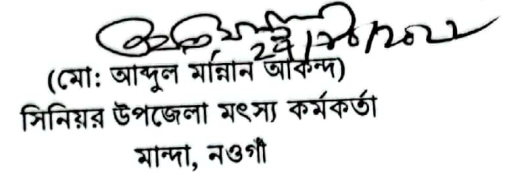 (মো: আব্দুল মান্নান আকন্দ)
সিনিয়র উপজেলা মৎস্য কর্মকর্তা
মান্দা, নওগাঁ